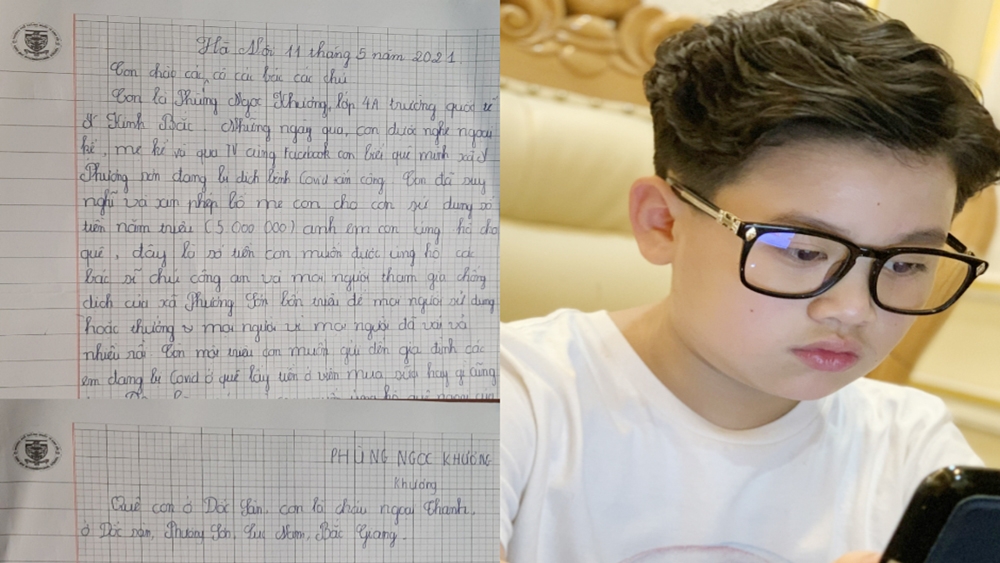 Hà Nội 11 tháng 5 năm 2021.
Con chào các cô các bác các chú
Con là Phùng Ngọc Khương, lớp 4A trường quốc tế
Kinh Bắc. Những ngày qua, con được nghe ngoại
kể, mẹ kể và qua TV cùng Facebook con biết quê mình xã
Phương Sơn đang bị dịch bệnh Covid tấn công. Con đã suy
nghĩ và xin phép bố mẹ con cho con sử dụng số
tiền năm triệu (5 000 000) anh em con ủng hộ cho
quê, đây là số tiền con muốn được ủng hộ các
bác sĩ chú công an và mọi người tham gia chống
dịch của xã Phương Sơn bốn triệu để mọi người sử dụng
hoặc thưởng mọi người vì mọi người đã vất vả
nhiều rồi. Con một triệu con muốn gửi đến gia đình các
em đang bị Covid ở quê lấy tiền mua sữa hay gì cũng
PHÙNG NGỌC KHƯƠNG
Khương
Quê con ở Dốc Sàn, con là cháu ngoại Thanh,
ở Dốc sàn, Phương Sơn, Lục Nam, Bắc Giang.